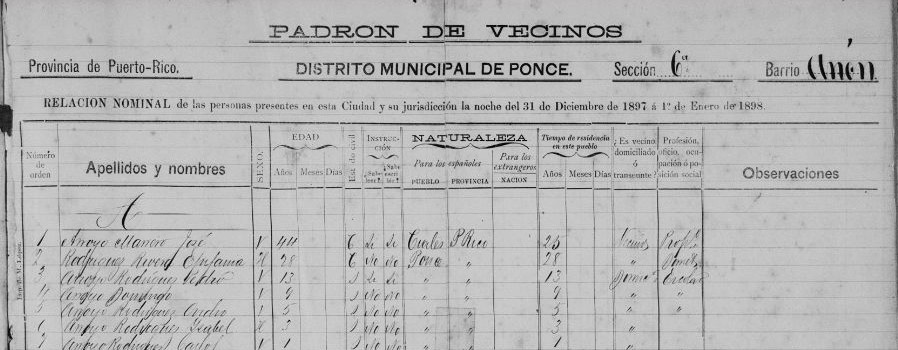 PADRON DE VECINOS
Provincia de Puerto-Rico. DISTRITO MUNICIPAL DE PONCE. Sección 6a Barrio
RELACION NOMINAL de las personas presentes en esta Ciudad y su jurisdicción la noche del 31 de Diciembre de 1897 á 1º de Enero de 1898.
Número de orden
Apellidos y nombres
SEXO.
EDAD
Años Meses Días
Est.do civil
INSTRUCCIÓN
NATURALEZA
Para los españoles
PUEBLO PROVINCIA
Para los extrangeros
NACION
Tiempo de residencia en este pueblo
Años Meses Días
¿Es vecino domiciliado ó transeunte?
Profesión, oficio, ocupación ó posición social
Observaciones
A
1 Arroyo José V 44 C Si Si P. Rico 25
2 Rodriguez Rivera 28 C No No Ponce " 28 "
3 Arroyo Rodriguez V 13 S Si Si " " 13
4 Arroyo Domingo V 9 S No No " " 9 " "
5 Arroyo Rodriguez V 5 S No No " " 5 " "
6 Arroyo Rodriguez Isabel H 3 S No No " " 3 "
7 Arroyo Rodriguez Carlos V 1 S No No " " 1 "